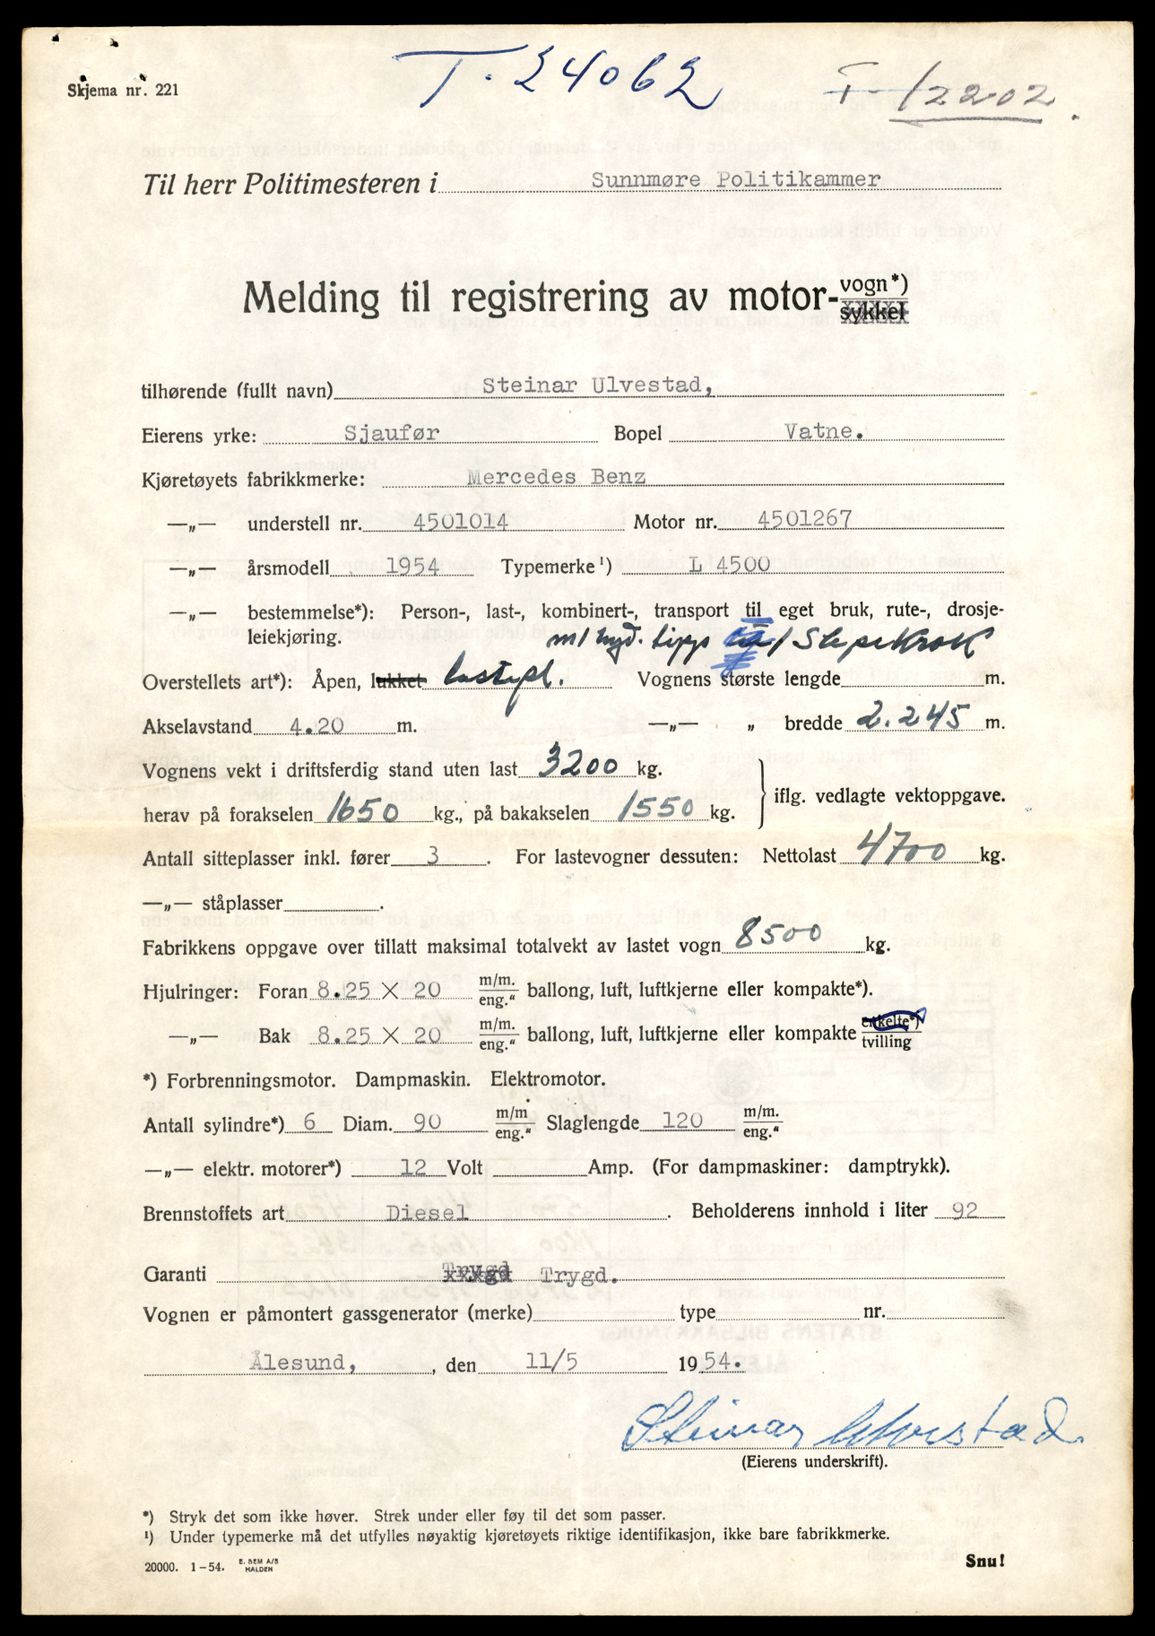 T. 24062
T-12202.
Skjema nr. 221
Til herr Politimesteren i Sunnmøre Politikammer
Melding til registrering av motor- vogn*)
sykkel
tilhørende (fullt navn) Steinar Ulvestad,
Eierens yrke: Sjaufør Bopel Vatne.
Kjøretøyets fabrikkmerke: Mercedes Benz
—„— understell nr. 4501014 Motor nr. 4501267
—„— årsmodell 1954 Typemerke ¹) L 4500
—„— bestemmelse*): Person-, last-, kombinert-, transport til eget bruk, rute-, drosje-
leiekjøring. m/ hyd. tipp / Slepekrok
Overstellets art*): Åpen, lukket lastepl. Vognens største lengde m.
Akselavstand 4.20 m. —„— „ bredde 2.245 m.
Vognens vekt i driftsferdig stand uten last 3200 kg.
herav på forakselen 1650 kg., på bakakselen 1550 kg. iflg. vedlagte vektoppgave.
Antall sitteplasser inkl. fører 3 . For lastevogner dessuten: Nettolast 4700 kg.
—„— ståplasser .
Fabrikkens oppgave over tillatt maksimal totalvekt av lastet vogn 8500 kg.
Hjulringer: Foran 8.25 X 20 m/m. eng." ballong, luft, luftkjerne eller kompakte*).
—„— Bak 8.25 X 20 m/m. eng." ballong, luft, luftkjerne eller kompakte enkelte*) tvilling
*) Forbrenningsmotor. Dampmaskin. Elektromotor.
Antall sylindre*) 6 Diam. 90 m/m eng." Slaglengde 120 m/m. eng."
—„— elektr. motorer*) 12 Volt Amp. (For dampmaskiner: damptrykk).
Brennstoffets art Diesel . Beholderens innhold i liter 92
Garanti Trygd Trygd.
Vognen er påmontert gassgenerator (merke) type nr.
Ålesund, , den 11/5 1954.
Steinar Ulvestad.
(Eierens underskrift).
*) Stryk det som ikke høver. Strek under eller føy til det som passer.
¹) Under typemerke må det utfylles nøyaktig kjøretøyets riktige identifikasjon, ikke bare fabrikkmerke.
20000. 1-54. E. SEM A/S HALDEN
Snu!